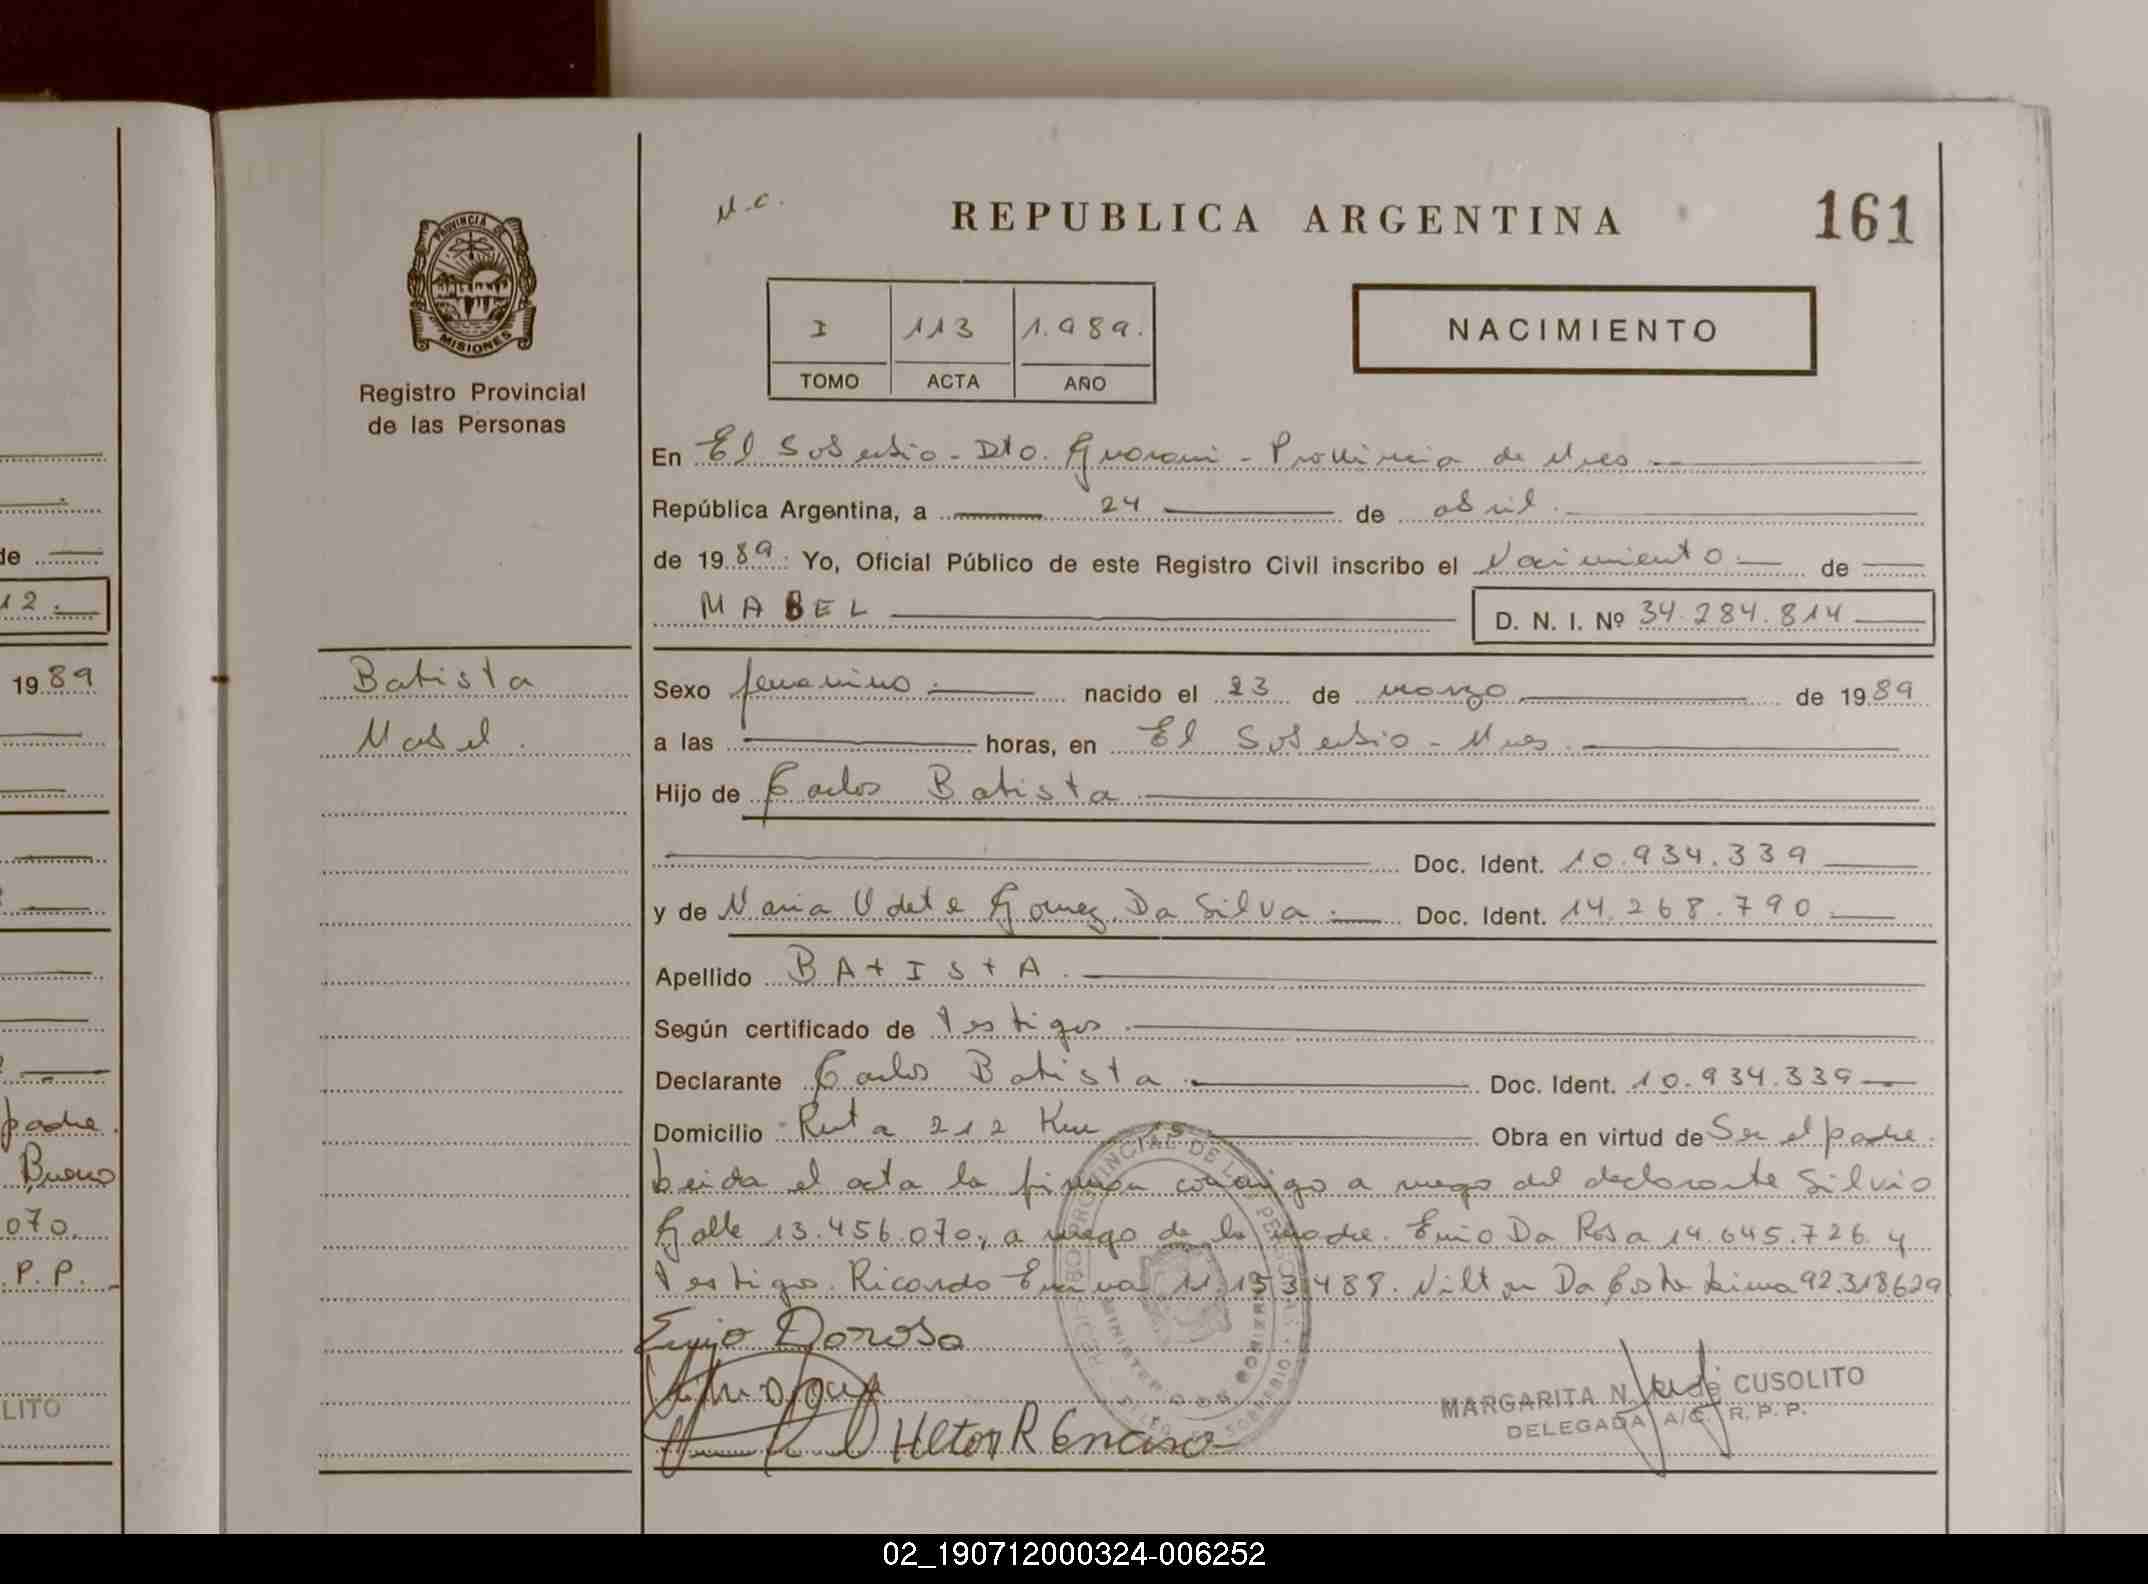 de
12.
1989
padre.
Bueno
070.
P. P.
LITO
PROVINCIA DE
MISIONES
Registro Provincial
de las Personas
Batista
Mabel.
N.C.
REPUBLICA ARGENTINA
161
I 113 1.989.
TOMO ACTA AÑO
NACIMIENTO
En El Soberbio - Dto. Guarani - Provincia de Mnes
República Argentina, a 24 de abril.
de 1989. Yo, Oficial Público de este Registro Civil inscribo el Nacimiento de
MABEL
D. N. I. Nº 34.284.814
Sexo femenino nacido el 23 de marzo de 1989
a las horas, en El Soberbio - Mnes.
Hijo de Carlos Batista
Doc. Ident. 10.934.339
y de Maria Odete Gomez Da Silva. Doc. Ident. 14.268.790
Apellido BATISTA.
Según certificado de testigos.
Declarante Carlos Batista. Doc. Ident. 10.934.339
Domicilio Ruta 212 Km 15 Obra en virtud de Ser el padre.
Leida el acta la firman conmigo a ruego del declarante Silvio
Galle 13.456.070, a ruego de la madre. Enio Da Rosa 14.645.726 y
testigos. Ricardo 11.153.488. Nilton Da Costa Lima 92.318.629
Enio Darosa
Hector R Enciso
MARGARITA N. de CUSOLITO
DELEGADA A/C. R. P. P.
02_190712000324-006252